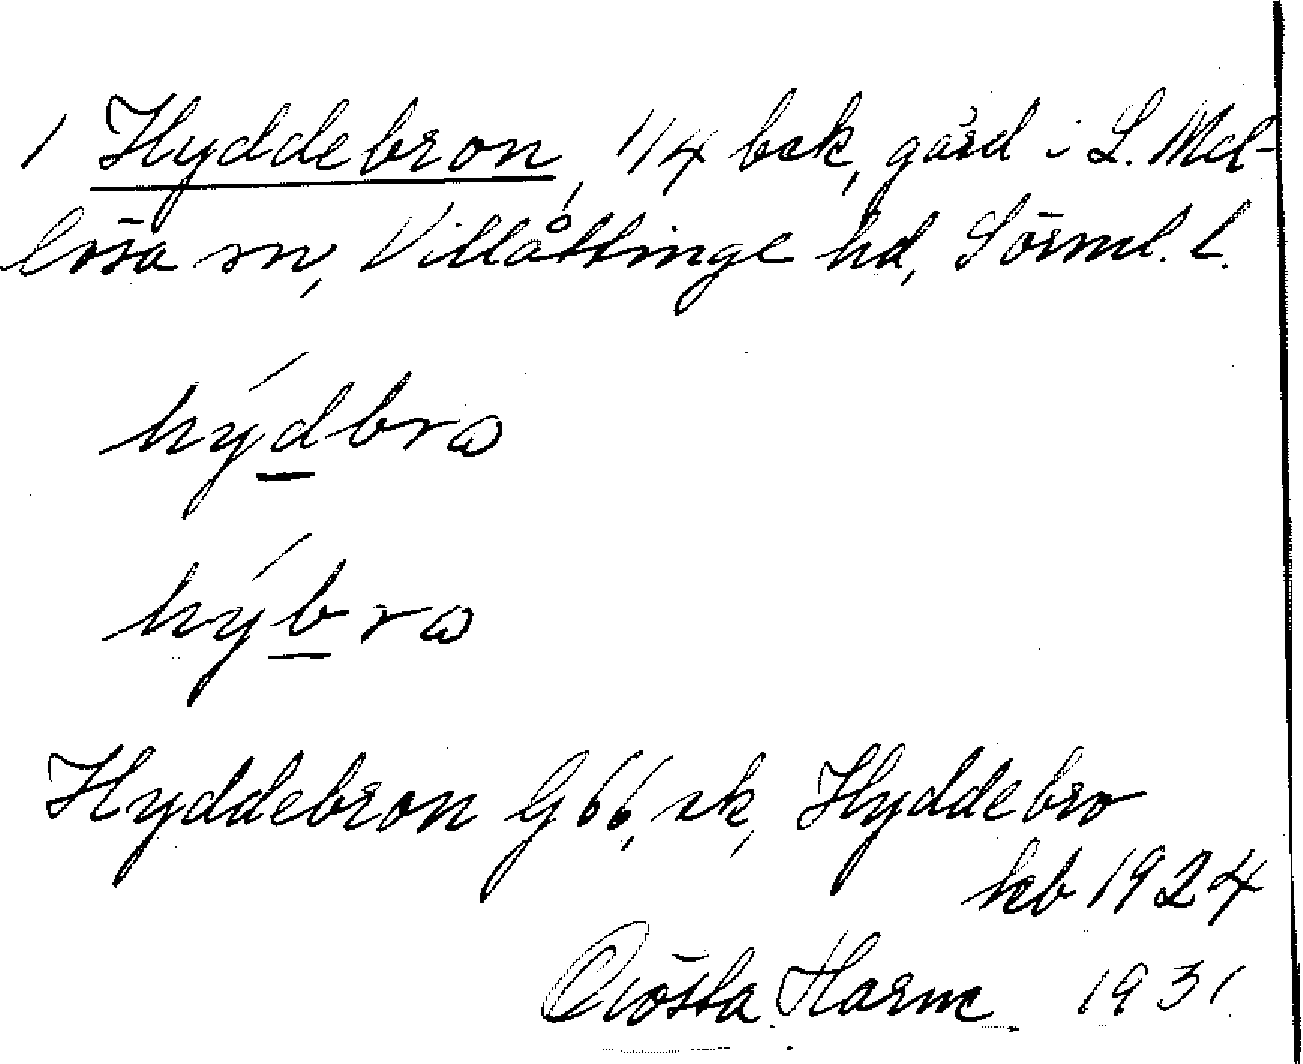 1 Hyddebron, 1/4 bsk, gård i L. Mel-
lösa sn, Villåttinge hd, Sörml. l.
hýdbro
hýbro
Hyddebron G 66, sk, Hyddebro
kb 1924
Gösta Harne 1931